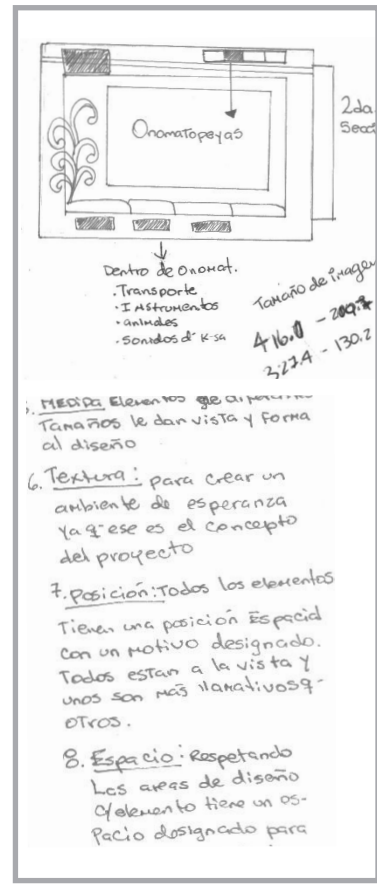 Onomatopeyas
2da
Secc
Dentro de Onomat.
· Transporte
· Instrumentos
· animales
· sonidos d' K-sa
Tamaño de image
416.0 - 209.
327.4 - 130.2
MEDIDA Elementos
Tamaños le dan vista y forma
al diseño
6. Textura: para crear un
ambiente de esperanza
ya q' ese es el concepto
del proyecto
7. Posición: Todos los elementos
Tienen una posición Espacial
con un motivo designado.
Todos estan a la vista y
unos son más llamativos q-
otros.
8. Espacio: Respetando
Las areas de diseño
c/elemento tiene un es-
pacio designado para